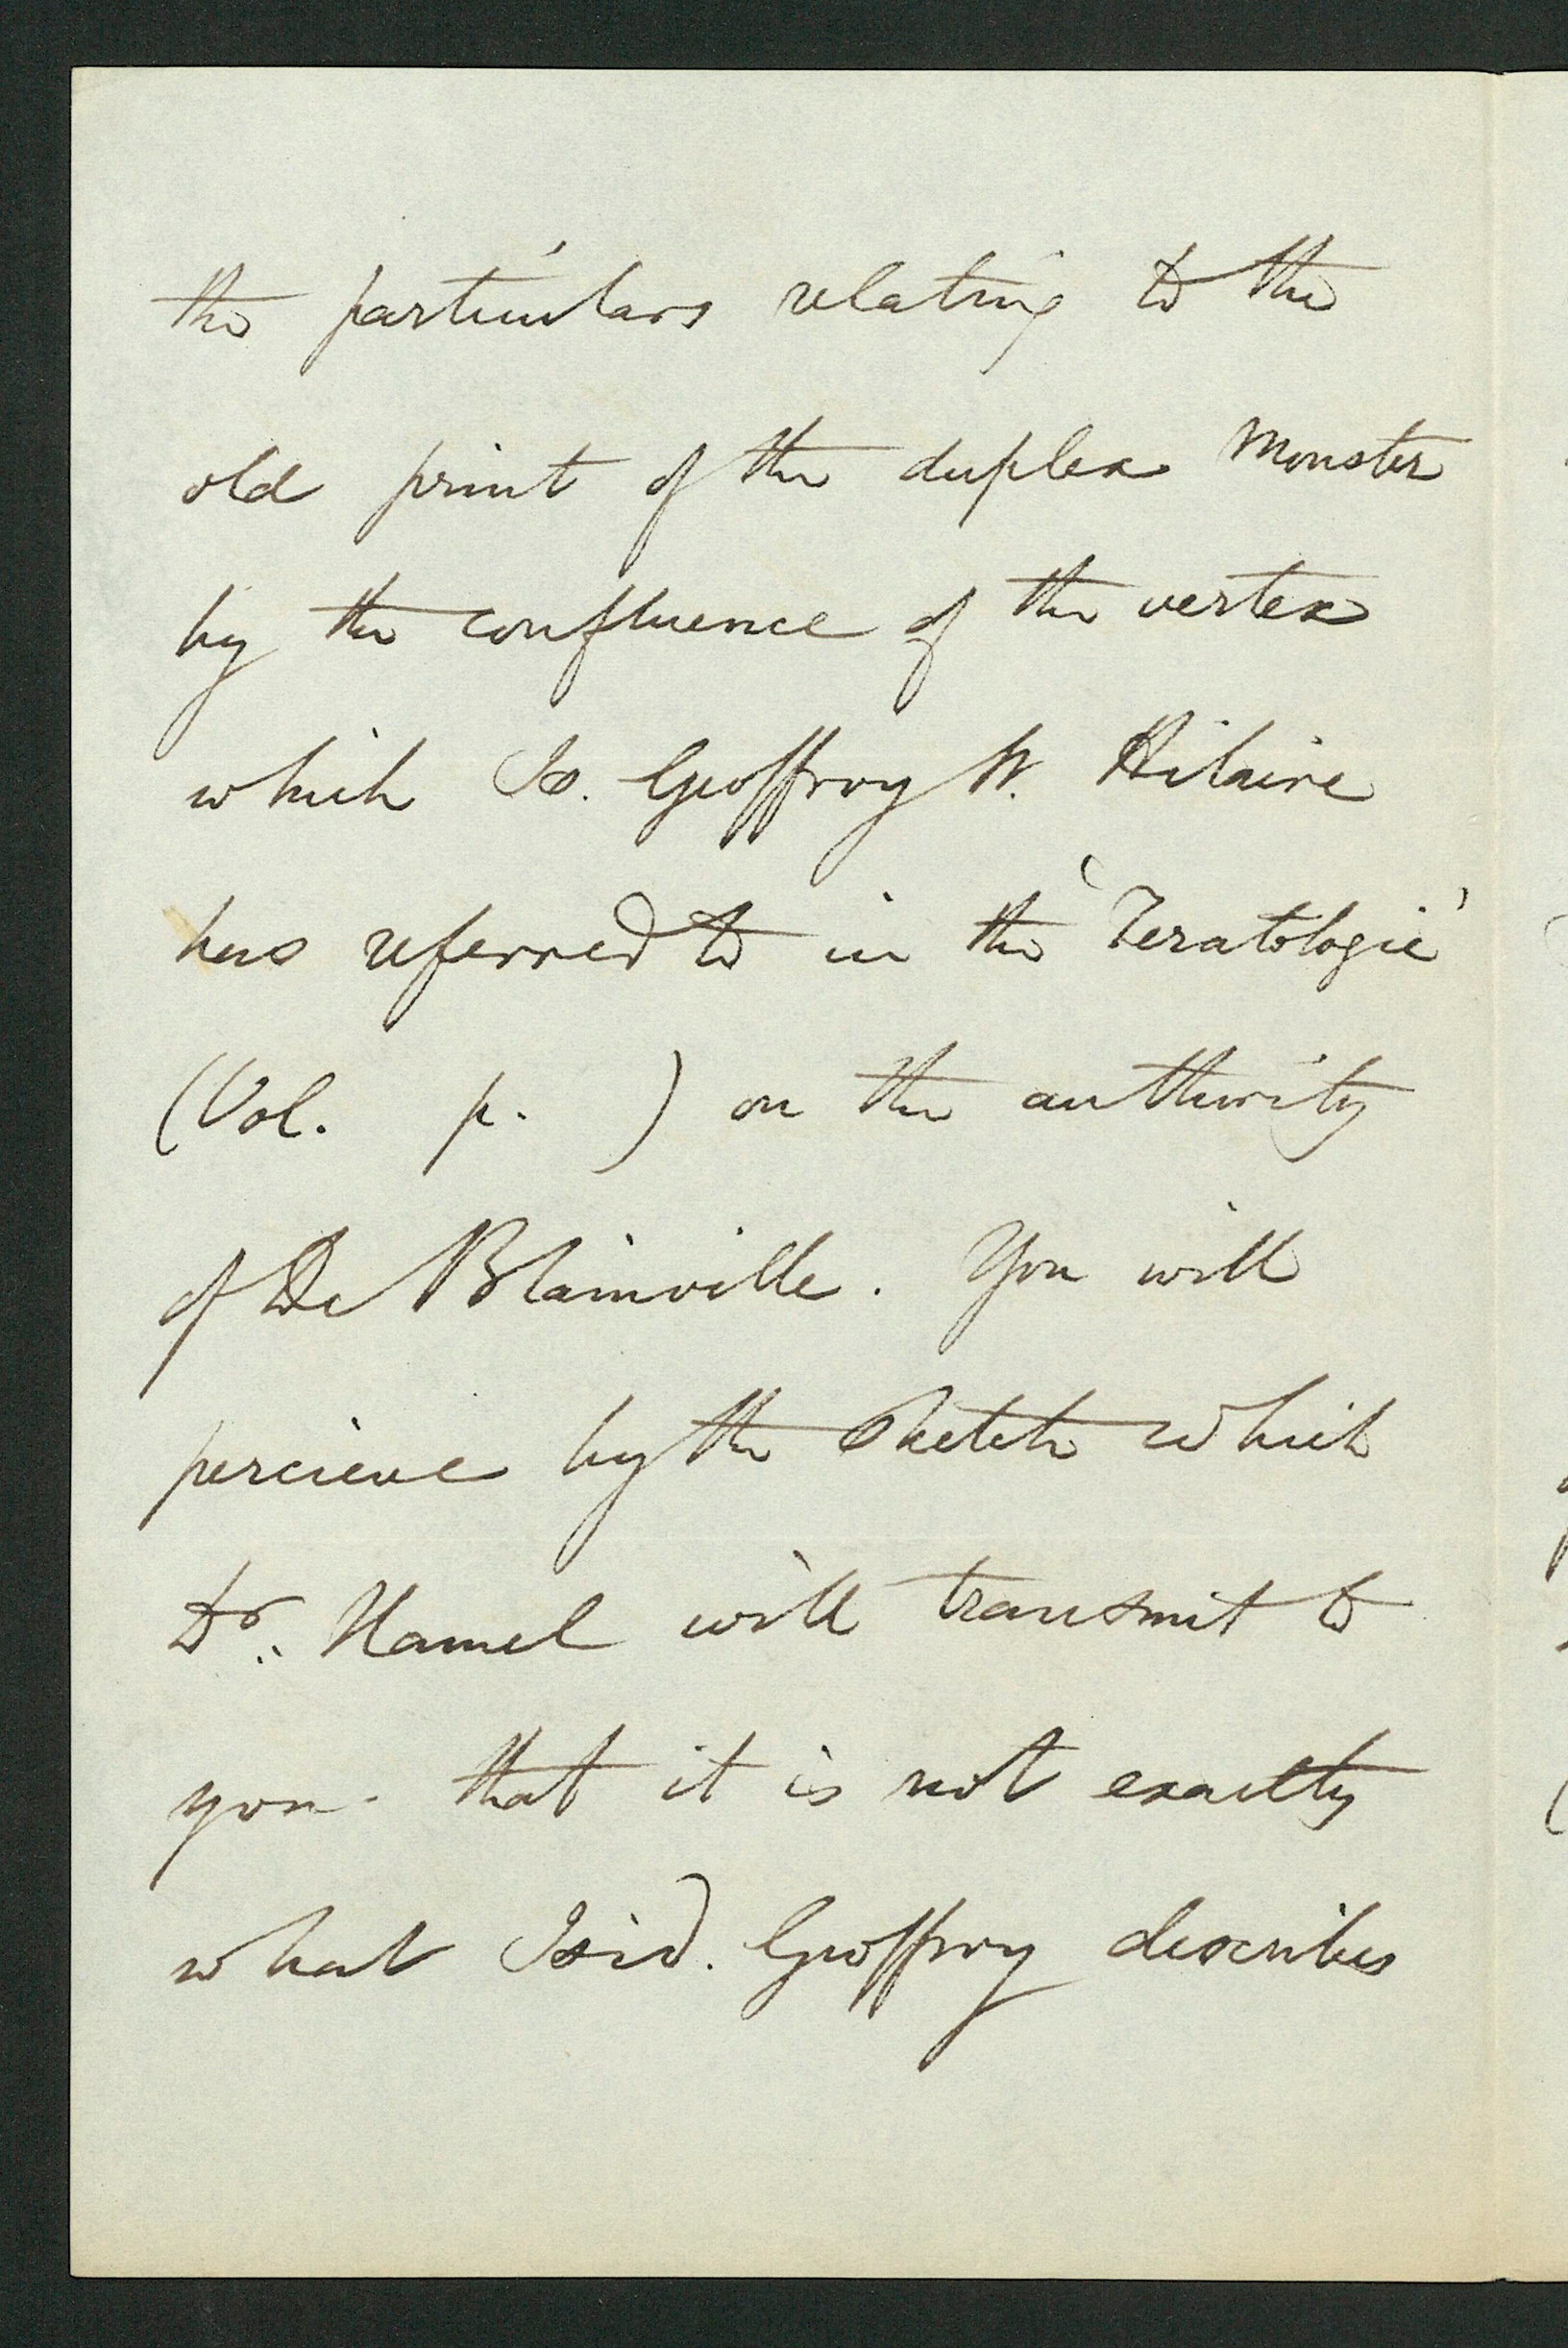 the particulars relating to the
old print of the duplex Monster
by the confluence of the vertex
which Is. Geoffroy St. Hilaire
has referred to in the 'Teratologie'
(Vol. p. ) on the authority
of De Blainville. You will
percieve by the Sketch which
Dr. Hamel will transmit to
you. that it is not exactly
what Isid. Geoffroy describes